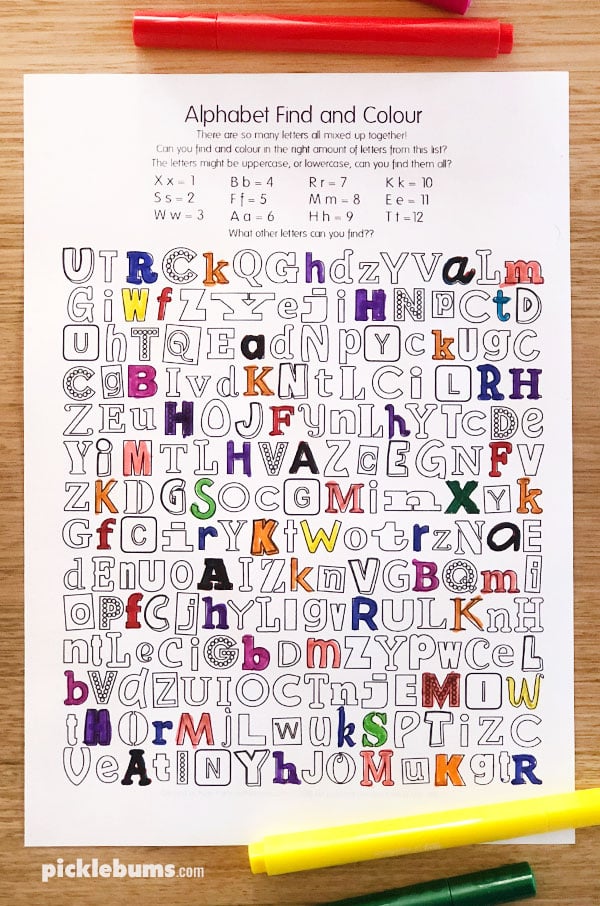 Alphabet Find and Colour
There are so many letters all mixed up together!
Can you find and colour in the right amount of letters from this list?
The letters might be uppercase, or lowercase, can you find them all?
X x = 1 B b = 4 R r = 7 K k = 10
S s = 2 F f = 5 M m = 8 E e = 11
W w = 3 A a = 6 H h = 9 T t =12
What other letters can you find??
U T R C k Q G h d z Y V a L m
G i W f Z Y e j i H N p C t D
U h T Q E a d N p Y c k U g C
C g B I v d K N t L C i L R H
Z E u H O J F y n L h Y T c D e
Y i M T L H V A Z c E G N F V
Z K D G S O C G M i n x X Y k
G f C i r Y K t W o t r z N a E
d E n U O A I Z k n V G B Q m i
O P f C j h Y L I g v R U L K n H
n t L e C i G b D m Z Y P w C e L
b V d Z U I O C T n j E M I W
t H O r M j L w u k S P T i Z C
V e A t I N Y h J O M u K g t R
picklebums.com